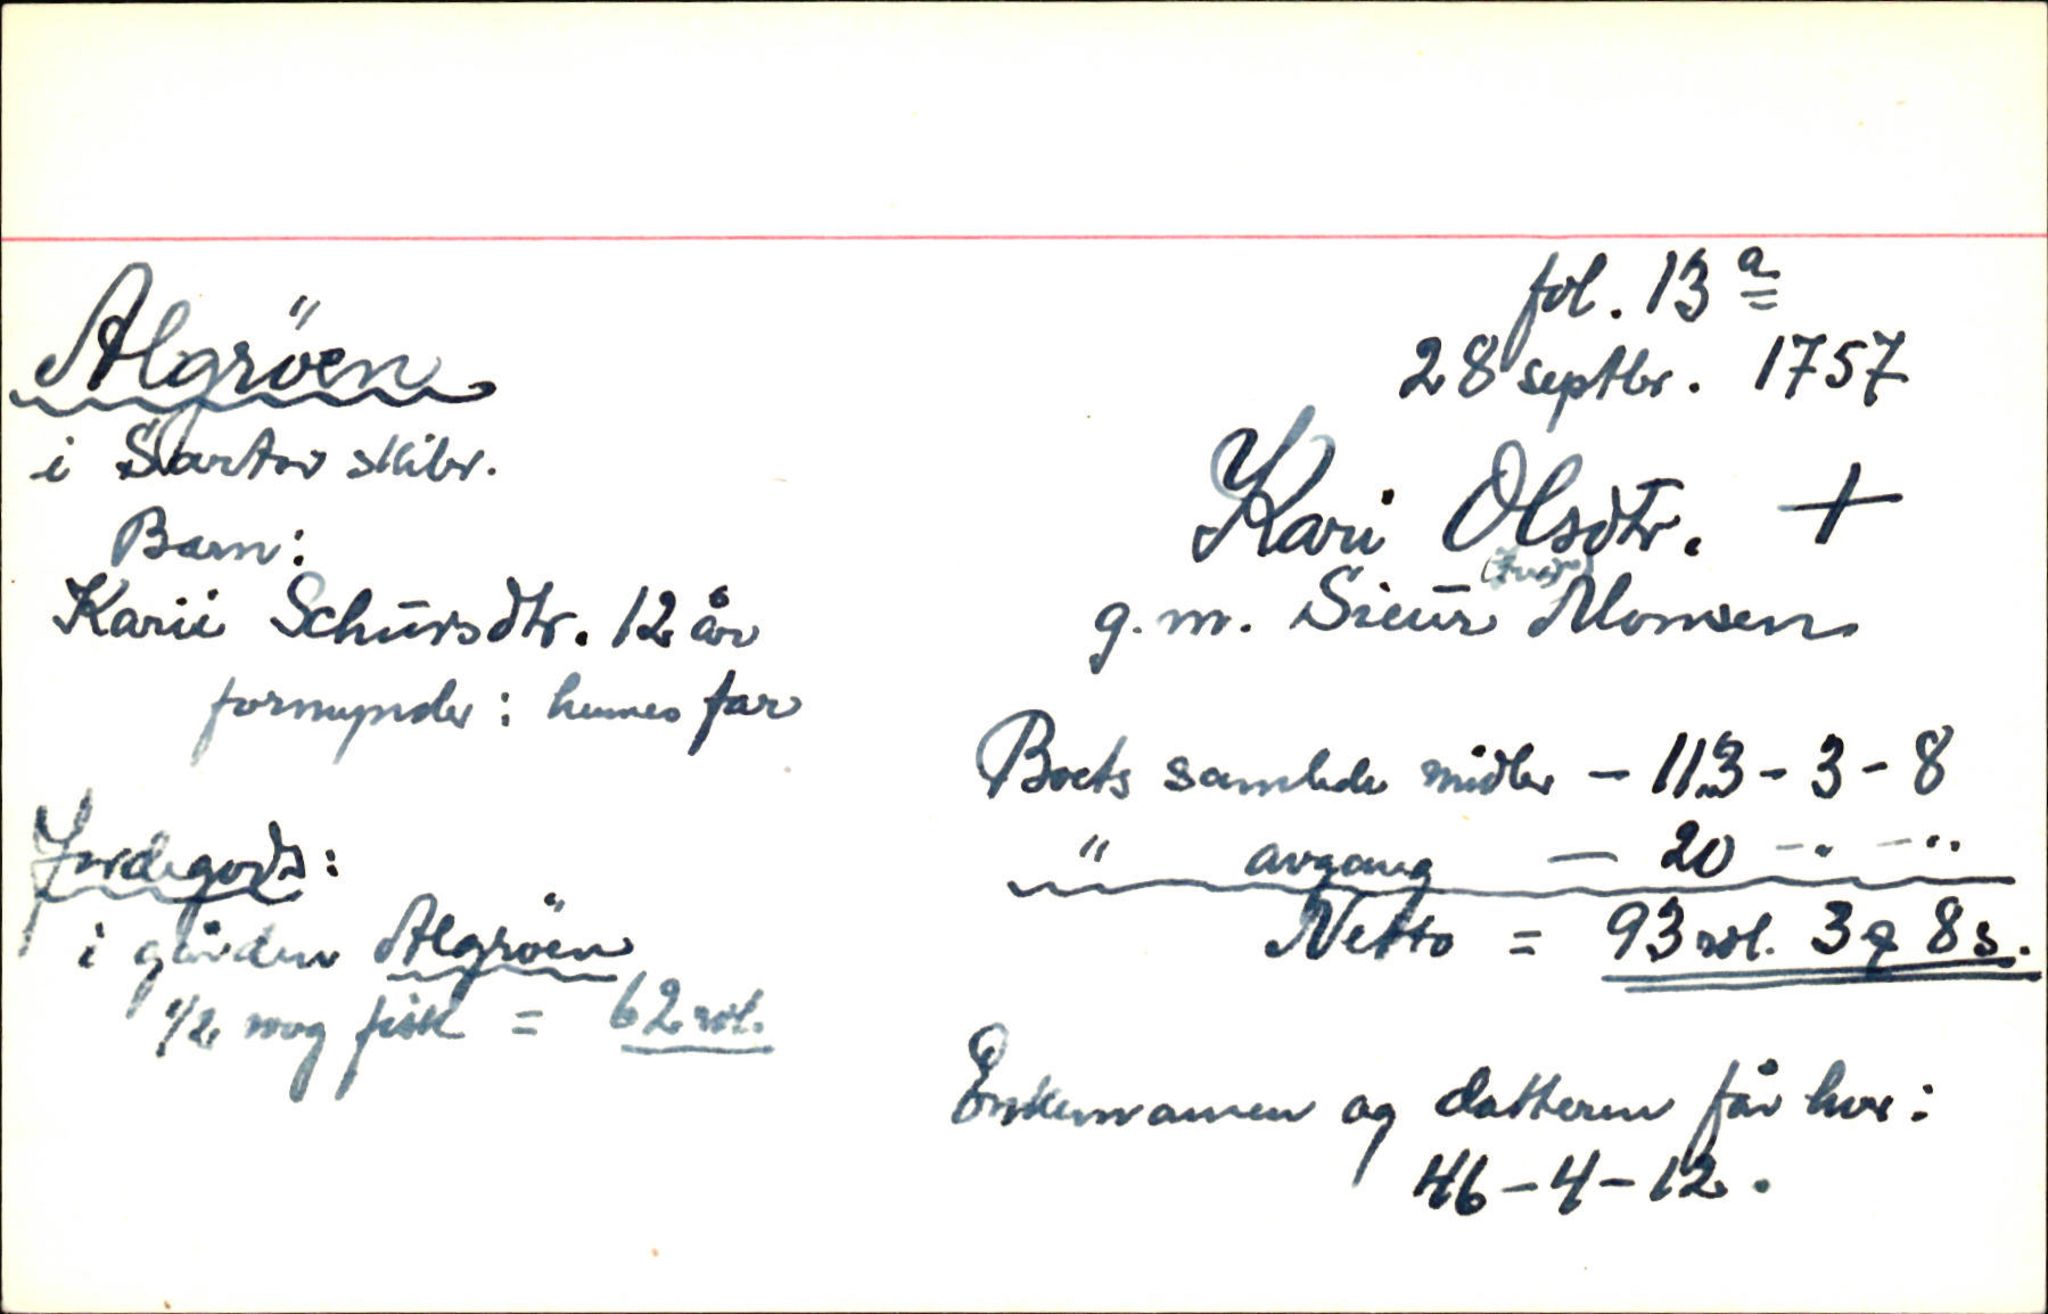 fol. 13 a
28 septbr. 1757
Algröen
i Sartor skibr.
Barn:
Karii Schūrsdtr. 12 år
formynder: hennes far
Jordegods:
i gården Algröen
1/2 vog fisk = 62 rdl.
Kari Olsdtr. +
g. m. Sieūr Monsen
Boets samlede midler - 113 - 3 - 8
" avgang - 20 - " - "
Netto = 93 rdl. 3 q 8 s.
Enkemannen og datteren får hver:
46 - 4 - 12.